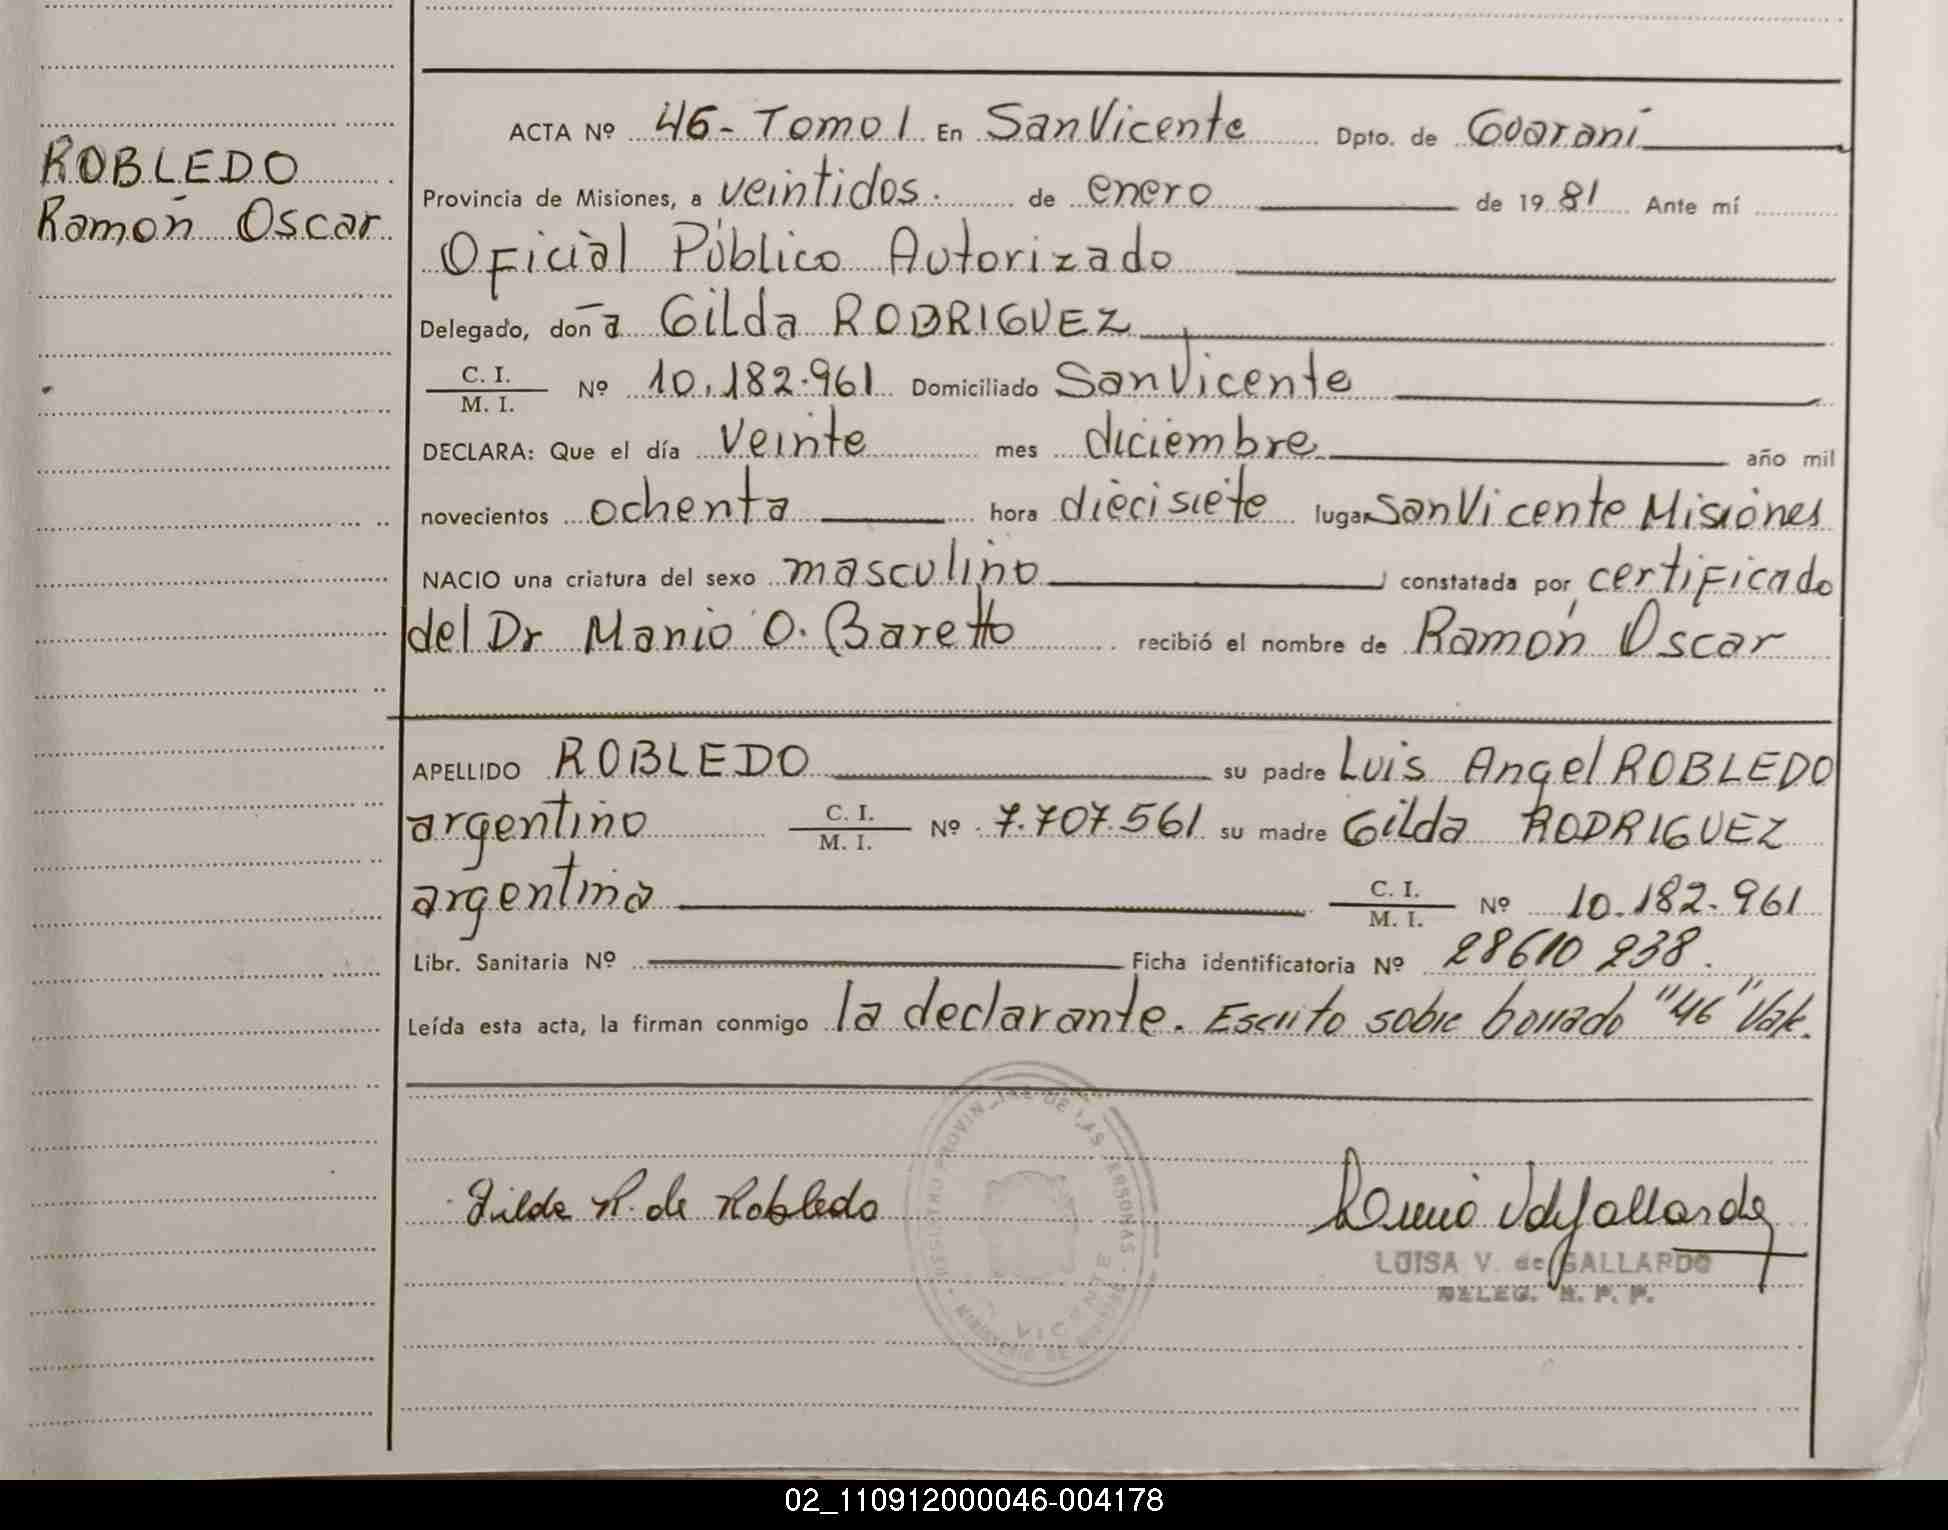 ROBLEDO
Ramón Oscar
ACTA Nº 46- Tomo I En San Vicente Dpto. de Guaraní
Provincia de Misiones, a veintidos. de enero de 1981 Ante mí
Oficial Público Autorizado
Delegado, doña Gilda RODRIGUEZ
C. I.
M. I. Nº 10.182.961 Domiciliado San Vicente
DECLARA: Que el día veinte mes diciembre año mil
novecientos ochenta hora diecisiete lugar San Vicente Misiones
NACIO una criatura del sexo masculino constatada por certificado
del Dr Manio O. Baretto recibió el nombre de Ramón Oscar
APELLIDO ROBLEDO su padre Luis Angel ROBLEDO
argentino C. I. M. I. Nº 7.707.561 su madre Gilda RODRIGUEZ
argentina C. I. M. I. Nº 10.182.961
Libr. Sanitaria Nº Ficha identificatoria Nº 28610 238.
Leída esta acta, la firman conmigo la declarante. Escrito sobre borrado "46" Vale.
Gilda R. de Robledo
LUISA V. de GALLARDO
DELEG. R. P. P.
VICENTE
02_110912000046-004178